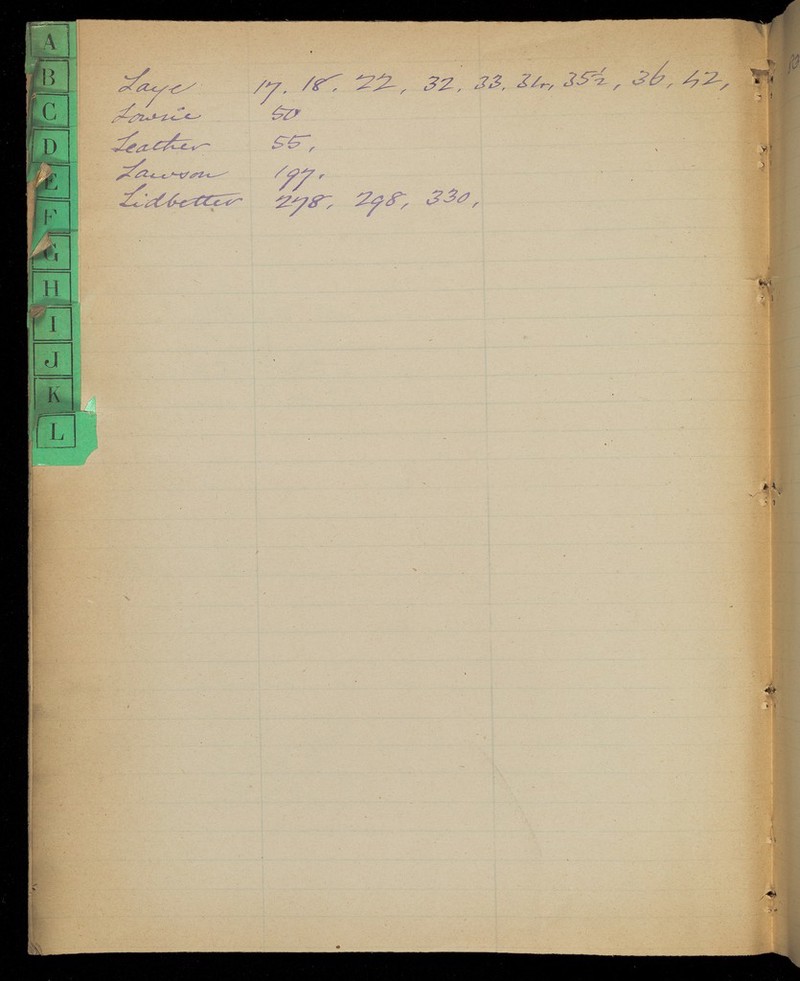 A
B
C
D
E
F
G
H
I
J
K
L
Laye 17. 18. 22, 32. 33. 34, 35½, 36, 42,
Lowrie 50
Leather 55,
Lawson 197.
Lidbetter 278, 298, 330,